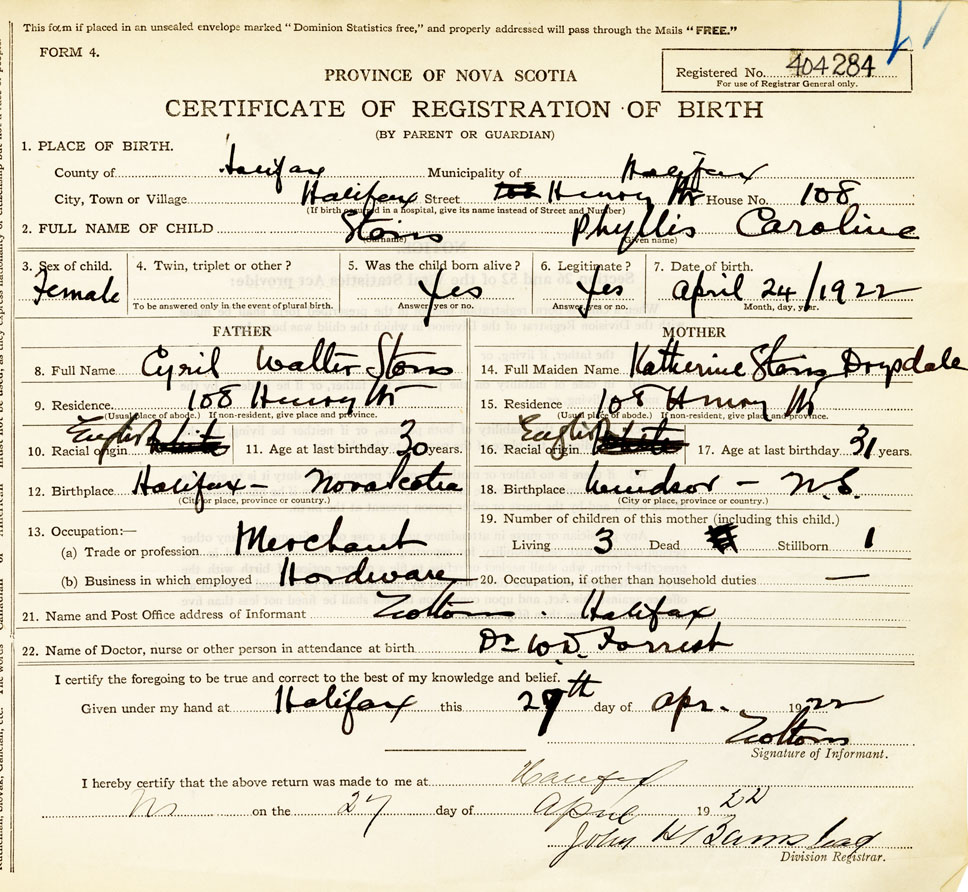 This form if placed in an unsealed envelope marked "Dominion Statistics free," and properly addressed will pass through the Mails "FREE."
FORM 4.
Registered No. 404284
For use of Registrar General only.
PROVINCE OF NOVA SCOTIA
CERTIFICATE OF REGISTRATION OF BIRTH
(BY PARENT OR GUARDIAN)
1. PLACE OF BIRTH.
County of Halifax Municipality of Halifax
City, Town or Village Halifax Street Henry St House No. 108
(If birth occurred in a hospital, give its name instead of Street and Number)
2. FULL NAME OF CHILD Phyllis Caroline
(Surname) (Given name)
3. Sex of child. 4. Twin, triplet or other? 5. Was the child born alive? 6. Legitimate? 7. Date of birth.
Female Yes Yes April 24/1922
To be answered only in the event of plural birth. Answer yes or no. Answer yes or no. Month, day, year.
FATHER MOTHER
8. Full Name Cyril Walter 14. Full Maiden Name Katherine Drysdale
9. Residence 108 Henry St 15. Residence 108 Henry St
(Usual place of abode.) If non-resident, give place and province. (Usual place of abode.) If non-resident, give place and province.
10. Racial origin English White 11. Age at last birthday 30 years. 16. Racial origin English White 17. Age at last birthday 31 years.
12. Birthplace Halifax – Nova Scotia 18. Birthplace Windsor – N.S.
(City or place, province or country.) (City or place, province or country.)
13. Occupation:—
(a) Trade or profession Merchant
(b) Business in which employed Hardware
19. Number of children of this mother (including this child.)
Living 3 Dead Stillborn 1
20. Occupation, if other than household duties —
21. Name and Post Office address of Informant Halifax
22. Name of Doctor, nurse or other person in attendance at birth Dr W.D. Forrest
I certify the foregoing to be true and correct to the best of my knowledge and belief.
Given under my hand at Halifax this 27th day of Apr. 1922
Signature of Informant.
I hereby certify that the above return was made to me at Halifax
NS on the 27 day of April 1922
John H
Division Registrar.